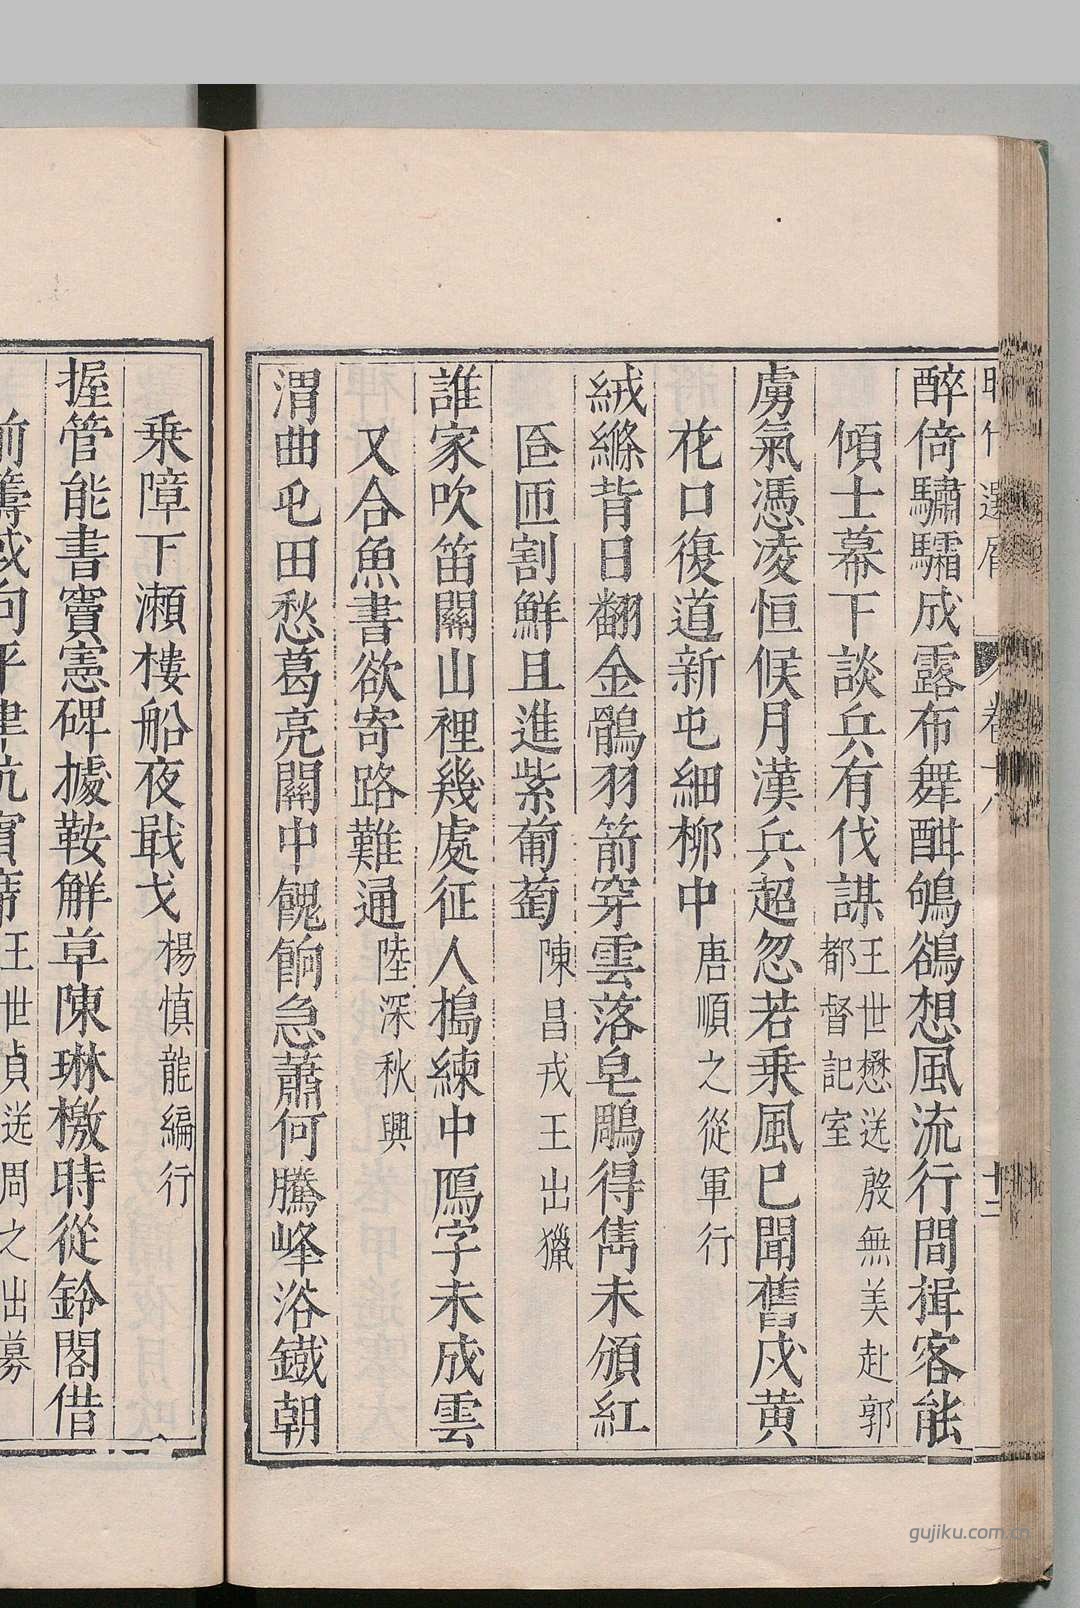 醉倚驌驦成露布舞酣鴝鵒想風流行間揖客能
傾士幕下談兵有伐謀王世懋送殷無美赴郭
都督記室
虜氣憑凌恒候月漢兵超忽若乘風巳聞舊戍黄
花口復道新屯細柳中唐順之從軍行
絨縧背日翻金鶻羽箭穿雲落皂鵰得雋未頒紅
叵匝割鮮且進紫葡萄陳昌戎王出獵
誰家吹笛關山裡幾處征人搗練中鴈字未成雲
又合魚書欲寄路難通陸深秋興
渭曲屯田愁葛亮關中餽餉急蕭何騰峰浴鐵朝
乘障下瀬樓船夜戢戈楊慎龍編行
握管能書竇憲碑據鞍觧草陳琳檄時從鈴閣借
王世貞送周之出募
gujiku.com.cn